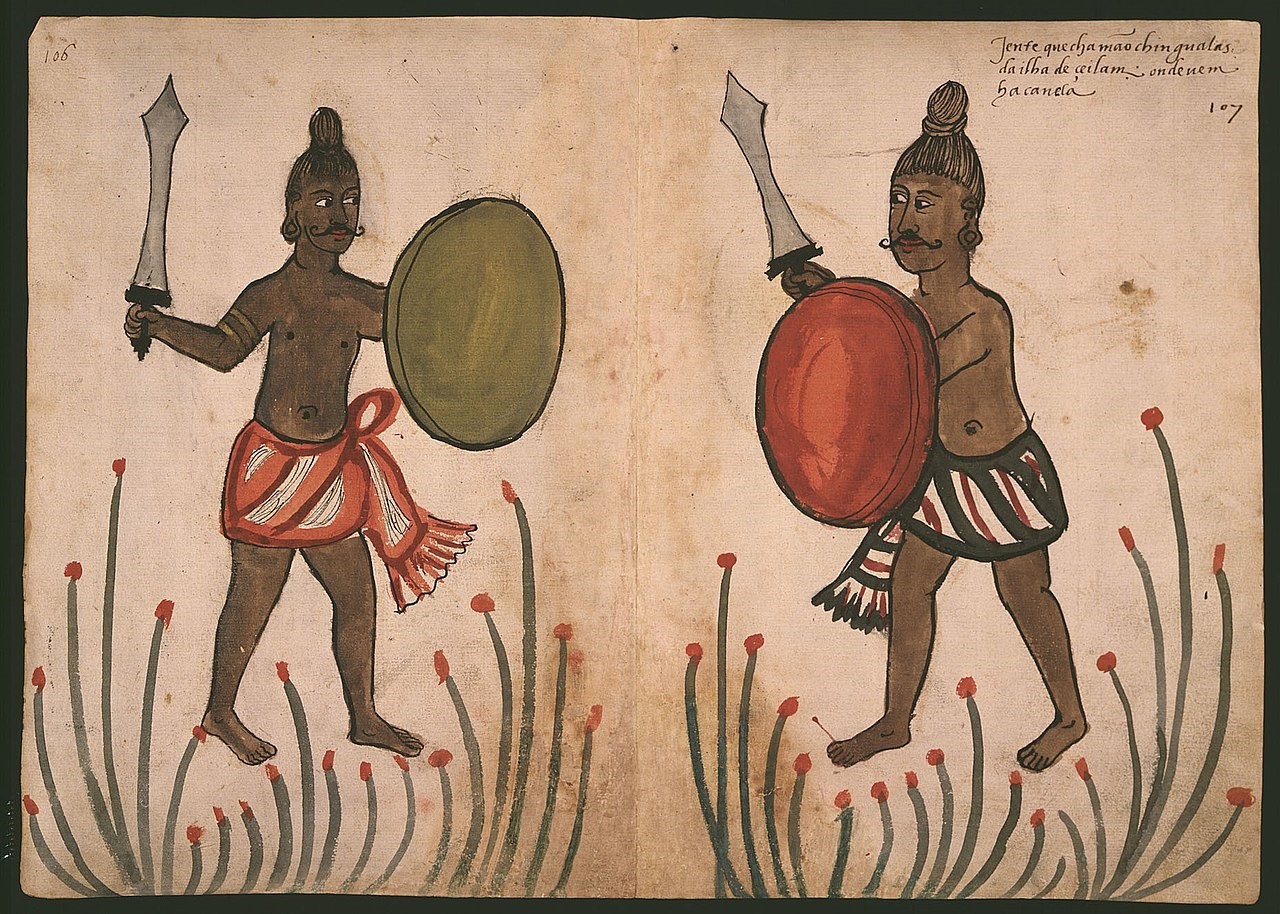 106
Jente que chamão chingualas
da ilha de çeilam: onde vem
ha canela
107